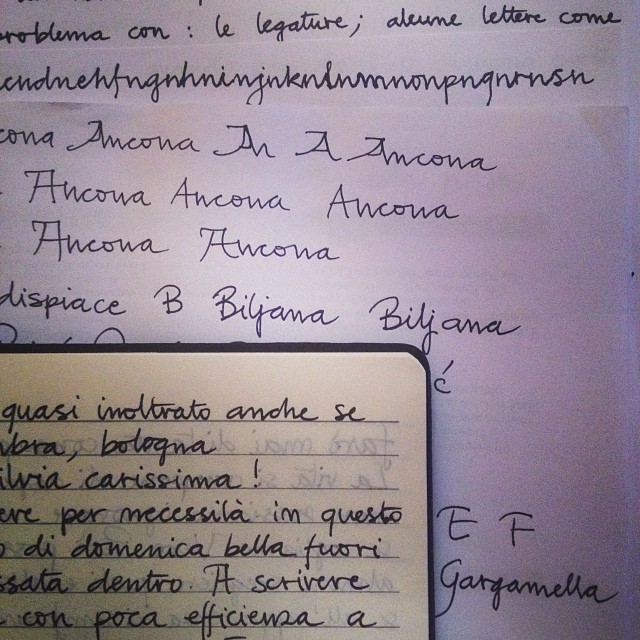 problema con : le legature; alcune lettere come
cndnehfngnhninjnknlnmnonpnqnrnsn
cona Ancona An A Ancona
Ancona Ancona Ancona
Ancona Ancona
dispiace B Biljana Biljana
ć
quasi inoltrato anche se
mbra, bologna
ilvia carissima !
ere per necessità in questo
o di domenica bella fuori
ssata dentro. A scrivere
con poca efficienza a
E F
Gargamella